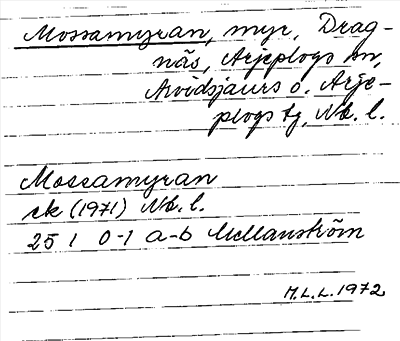 Mossamyran, myr, Drag-
näs, Arjeplogs sn,
Arvidsjaurs o. Arje-
plogs tg, Nb. l.
Mossamyran
ek (1971) Nb. l.
25 I 0-1 a-b Mellanström
M.L.L. 1972